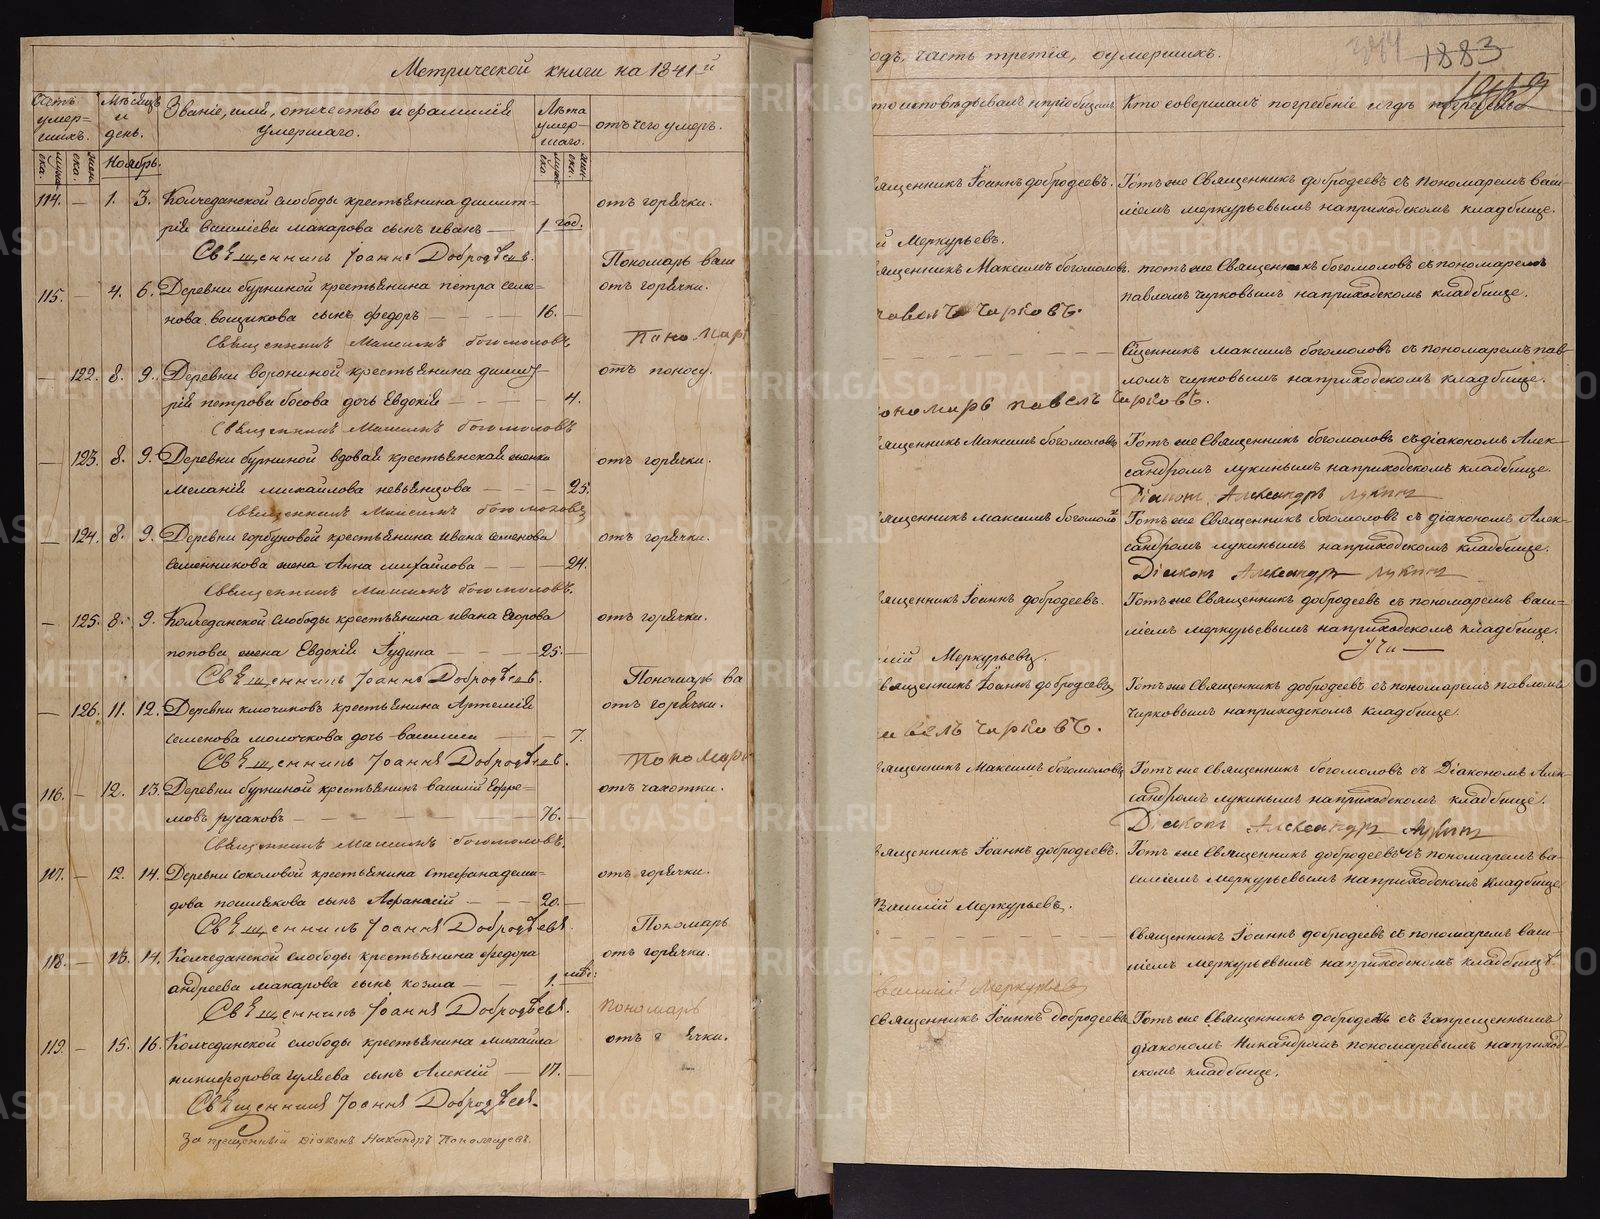 Метрической книги на 1841й
Счетъ умер=шихъ.
Мѣсяцъ и день.
Званіе, имя, отечество и фамилія умершаго.
Лѣта умер=шаго.
отъ чего умеръ.
Ноябрь.
114. — 1. 3. Колчеданской слободы крестьянина димит= отъ горячки.
рія васильева макарова сынъ иванъ — 1 год.
Священникъ Іоаннъ Добродѣевъ. Пономарь васи
115. — 4. 6. Деревни бурниной крестьянина петра семе= отъ горячки.
нова вощикова сынъ федоръ — 16. —
Священникъ Максимъ богомоловъ Пономарь
— 122. 8. 9. Деревни ворониной крестьянина димит= отъ поносу.
рія петрова босова дочь Евдокія — 4.
Священникъ Максимъ богомоловъ
— 123. 8. 9. Деревни бурниной вдовая крестьянская женка отъ горячки.
Меланія михайлова невьянцова — 25.
Священникъ Максимъ богомоловъ
— 124. 8. 9. Деревни горбуновой крестьянина ивана семенова отъ горячки.
жена Анна михайлова — 24.
Священникъ Максимъ богомоловъ.
— 125. 8. 9. Колчеданской слободы крестьянина ивана Егорова отъ горячки.
попова жена Евдокія — 25. —
Священникъ Іоаннъ Добродѣевъ. Пономарь ва
— 126. 11. 12. Деревни ключиковъ крестьянина Артемія отъ горячки.
семенова молочкова дочь василиса — 7.
Священникъ Іоаннъ Добродѣевъ. Пономарь
116. — 12. 13. Деревни бурниной крестьянинъ василій Ефре= отъ чахотки.
мовъ русаковъ — 76. —
Священникъ Максимъ богомоловъ.
117. — 12. 14. Деревни соколовой крестьянина Стефана деми= отъ горячки.
дова сынъ Афанасій — 20. —
Священникъ Іоаннъ Добродѣевъ. Пономарь
118. — 13. 14. Колчеданской слободы крестьянина федора отъ горячки.
андреева макарова сынъ козма — 1.
Священникъ Іоаннъ Добродѣевъ. Пономарь
119. — 15. 16. Колчеданской слободы крестьянина михаила отъ г ячки.
никифорова гуляева сынъ Алексій — 17. —
Священникъ Іоаннъ Добродѣевъ
Запрещенный Діаконъ Никандръ Пономаревъ.
одъ, часть третія, о умершихъ.
1883
то исповѣдывалъ и пріобщалъ
Кто совершалъ погребеніе и гдѣ погребенъ
вященникъ Іоаннъ добродеевъ. Тотъ же Священникъ добродеевъ съ пономаремъ васи=
ліемъ меркурьевымъ на приходскомъ кладбище.
й Меркурьевъ.
вященникъ Максимъ богомоловъ. тотъ же Священникъ богомоловъ съ пономаремъ
павломъ чирковымъ на приходскомъ кладбище.
павелъ Чирковъ.
Сщенникъ максимъ богомоловъ съ пономаремъ пав=
ломъ чирковымъ на приходскомъ кладбище.
ономарь павелъ Чирковъ.
вященникъ Максимъ богомоловъ Тотъ же Священникъ богомоловъ съ діакономъ Алек=
сандромъ лукинымъ на приходскомъ кладбище.
Діаконъ Александръ Лукинъ
вященникъ максимъ богомоловъ Тотъ же Священникъ богомоловъ съ діакономъ Алек=
сандромъ лукинымъ на приходскомъ кладбище.
Діаконъ Александръ Лукинъ
вященникъ Іоаннъ добродеевъ. Тотъ же Священникъ добродеевъ съ пономаремъ васи=
ліемъ меркурьевымъ на приходскомъ кладбище.
лій Меркурьевъ.
вященникъ Іоаннъ добродеевъ Тотъ же Священникъ добродеевъ съ пономаремъ павломъ
Чирковымъ на приходскомъ кладбище.
авелъ Чирковъ.
вященникъ Максимъ богомоловъ Тотъ же Священникъ богомоловъ съ Діакономъ Алек=
сандромъ лукинымъ на приходскомъ кладбище.
Діаконъ Александръ Лукинъ
вященникъ Іоаннъ добродеевъ. Тотъ же Священникъ добродеевъ съ пономаремъ ва=
силіемъ меркурьевымъ на приходскомъ кладбище
Василій Меркурьевъ.
Священникъ Іоаннъ добродеевъ съ пономаремъ васи=
ліемъ меркурьевымъ на приходскомъ кладбищѣ.
василій Меркурьевъ
Священникъ Іоаннъ добродеевъ Тотъ же Священникъ добродеевъ съ запрещеннымъ
діакономъ Никандромъ пономаревымъ на приход=
скомъ кладбище.
METRIKI.GASO-URAL.RU